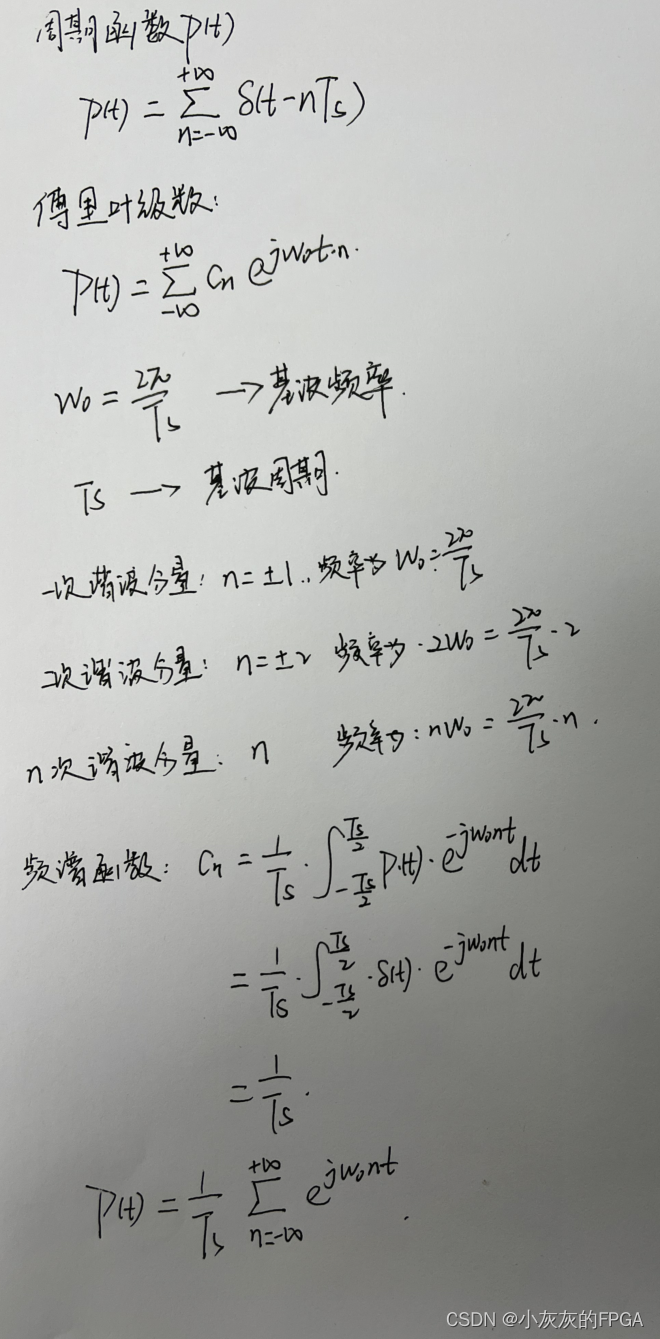 周期函数P(t)
P(t) = \sum_{n=-∞}^{+∞} δ(t-nTs)
傅里叶级数:
P(t) = \sum_{-∞}^{+∞} Cn e^{jw0t·n}.
W0 = \frac{2π}{Ts} → 基波频率.
Ts → 基波周期.
一次谐波分量: n=±1., 频率为 W0 = \frac{2π}{Ts}
二次谐波分量: n=±2 频率为·2W0 = \frac{2π}{Ts}·2
n次谐波分量: n 频率为: nW0 = \frac{2π}{Ts}·n.
频谱函数: Cn = \frac{1}{Ts}·\int_{-\frac{Ts}{2}}^{\frac{Ts}{2}} P(t)·e^{-jw0nt} dt
= \frac{1}{Ts}·\int_{-\frac{Ts}{2}}^{\frac{Ts}{2}}·δ(t)·e^{-jw0nt} dt
= \frac{1}{Ts}.
P(t) = \frac{1}{Ts} \sum_{n=-∞}^{+∞} e^{jw0nt}.
CSDN @小灰灰的FPGA